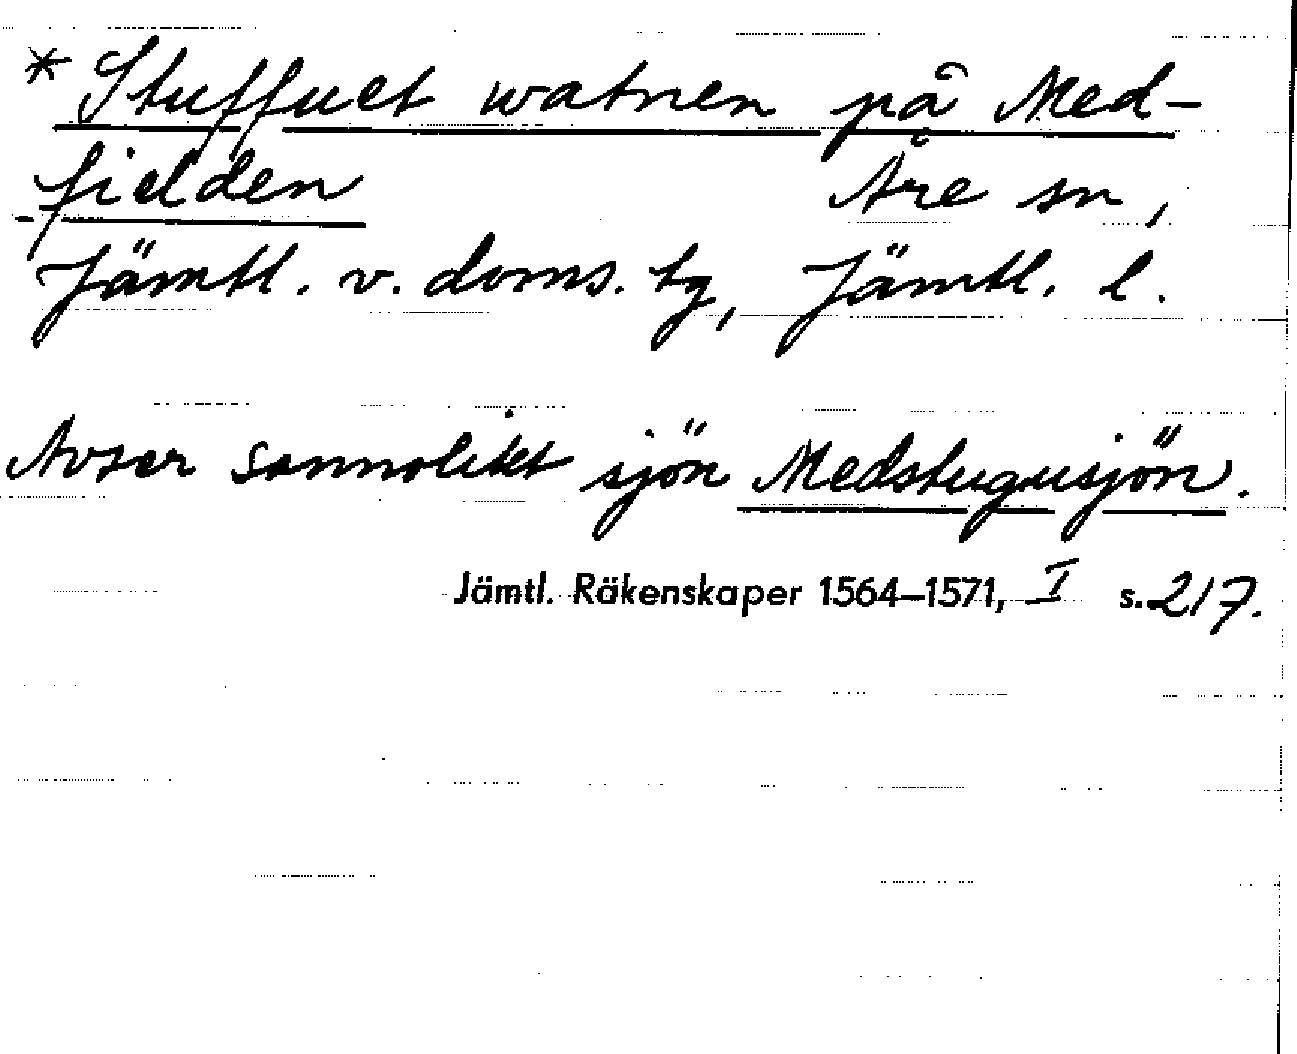 * Stuffuet watnen på Med-
fielden Åre sn,
Jämtl. v. doms. tg, Jämtl. l.
Avser sannolikt sjön Medstugusjön.
Jämtl. Räkenskaper 1564–1571, I s. 217.